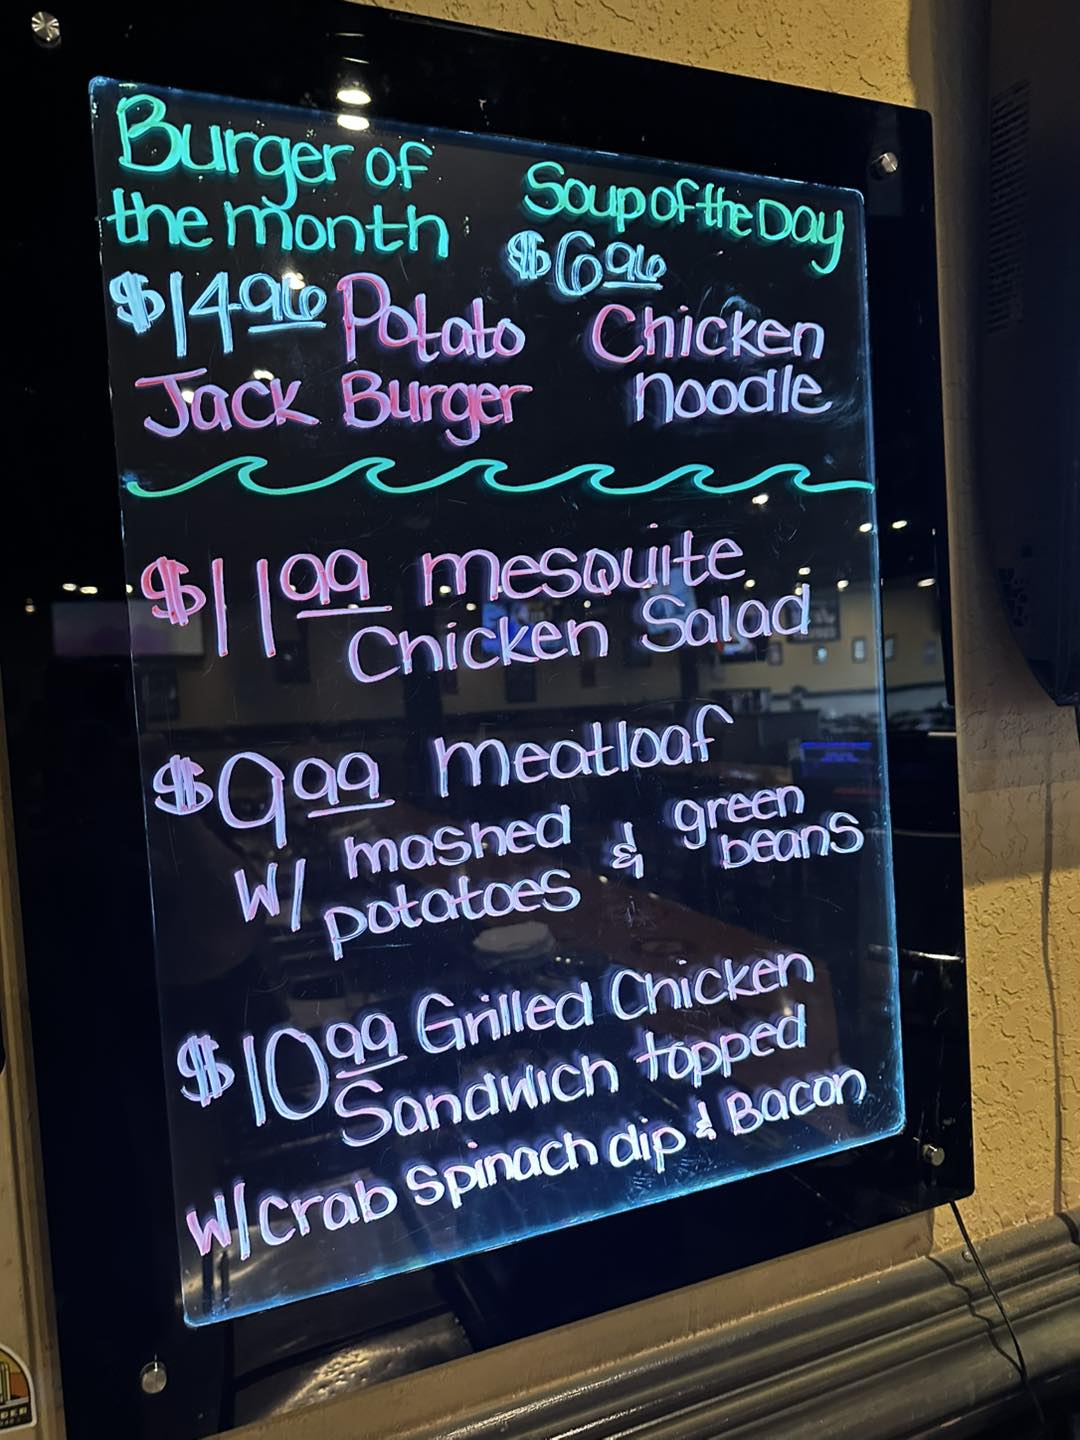 Burger of
the month
$14.96 Potato
Jack Burger
Soup of the Day
$6.96
Chicken
noodle
$11.99 mesquite
Chicken Salad
$9.99 meatloaf
W/ mashed
potatoes & green
beans
$10.99 Grilled Chicken
Sandwich topped
W/ Crab Spinach dip & Bacon